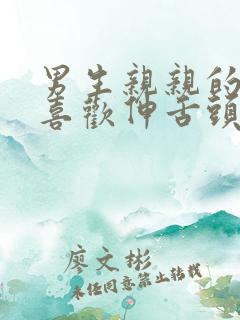 男生親親的
喜歡伸舌頭
廖文彬
未经同意禁止转载